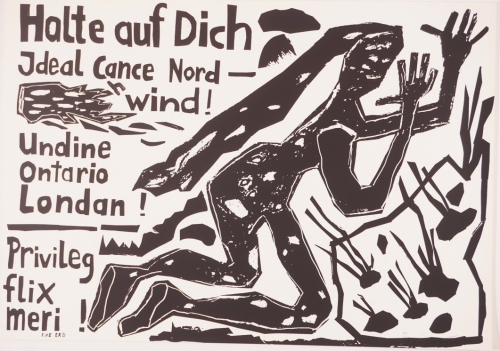 Halte auf Dich
Jdeal Cance Nord-
n wind!
Undine
Ontario
Londan!
Privileg
flix
meri!